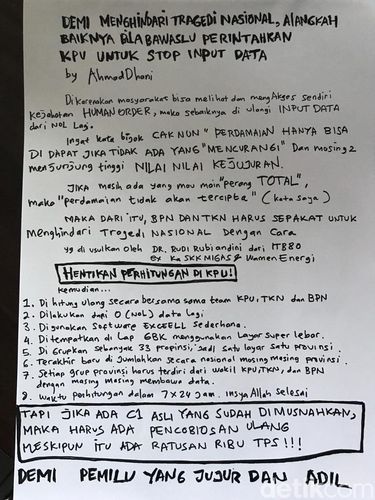 DEMI MENGHINDARI TRAGEDI NASIONAL, ALANGKAH
BAIKNYA BILA BAWASLU PERINTAHKAN
KPU UNTUK STOP INPUT DATA
by AhmadDhani
Dikarenakan masyarakat bisa melihat dan mengAkses sendiri
kejahatan HUMAN ORDER, maka sebaiknya di ulangi INPUT DATA
dari NOL lagi.
Ingat kata bijak CAK NUN "PERDAMAIAN HANYA BISA
DI DAPAT JIKA TIDAK ADA YANG "MENCURANGI" Dan masing2
menjunjung tinggi NILAI NILAI KEJUJURAN.
JIKA masih ada yang mau main "perang TOTAL",
maka "perdamaian tidak akan tercipta" (kata saya)
MAKA DARI ITU, BPN DAN TKN HARUS SEPAKAT UNTUK
Menghindari Tragedi NASIONAL Dengan Cara
yg di usulkan oleh DR. RUDI Rubiandini dari ITB80
ex Ka SKK MIGAS & Wamen Energi
HENTIKAN PERHITUNGAN DI KPU!
Kemudian...
1. Di hitung ulang secara bersama sama team KPU, TKN dan BPN
2. Dilakukan dari 0 (NOL) data lagi
3. Digunakan Software EXCELL sederhana.
4. Ditempatkan di Lap GBK menggunakan Layar super lebar.
5. Di Grupkan sebanyak 33 propinsi, jadi satu layar satu provinsi.
6. Terakhir baru di jumlahkan secara nasional masing masing provinsi.
7. Setiap grup provinsi harus terdiri dari wakil KPU, TKN, dan BPN
dengan masing masing membawa data.
8. Waktu perhitungan dalam 7 x 24 jam. Insya Allah selesai
TAPI JIKA ADA C1 ASLI YANG SUDAH DIMUSNAHKAN,
MAKA HARUS ADA PENCOBLOSAN ULANG
MESKIPUN ITU ADA RATUSAN RIBU TPS!!!
DEMI PEMILU YANG JUJUR DAN ADIL
detikcom